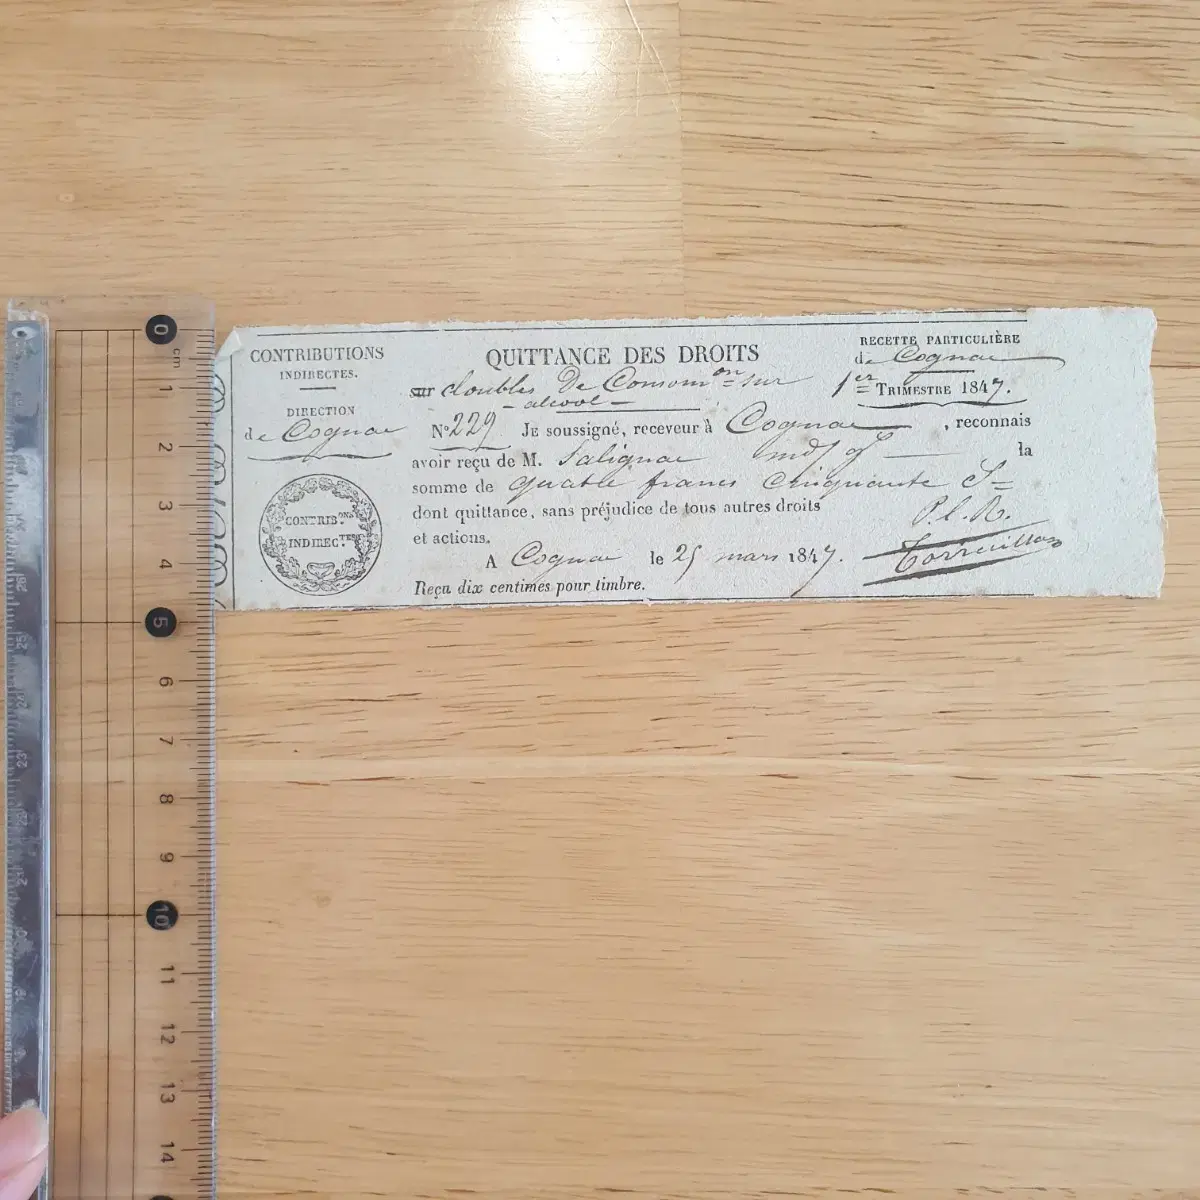 CONTRIBUTIONS
INDIRECTES.
DIRECTION
de Cognac
CONTRIB.ONS
INDIREC.TES
QUITTANCE DES DROITS
sur doubles De Consom.on sur
alcool
RECETTE PARTICULIÈRE
de Cognac
1er TRIMESTRE 1847.
N° 229 JE soussigné, receveur à Cognac, reconnais
avoir reçu de M. Salignac md la
somme de quatre francs cinquante
dont quittance, sans préjudice de tous autres droits
et actions.
P.l.R.
A Cognac le 25 mars 1847.
Reçu dix centimes pour timbre.
0 cm
1
2
3
4
5
6
7
8
9
10
11
12
13
14